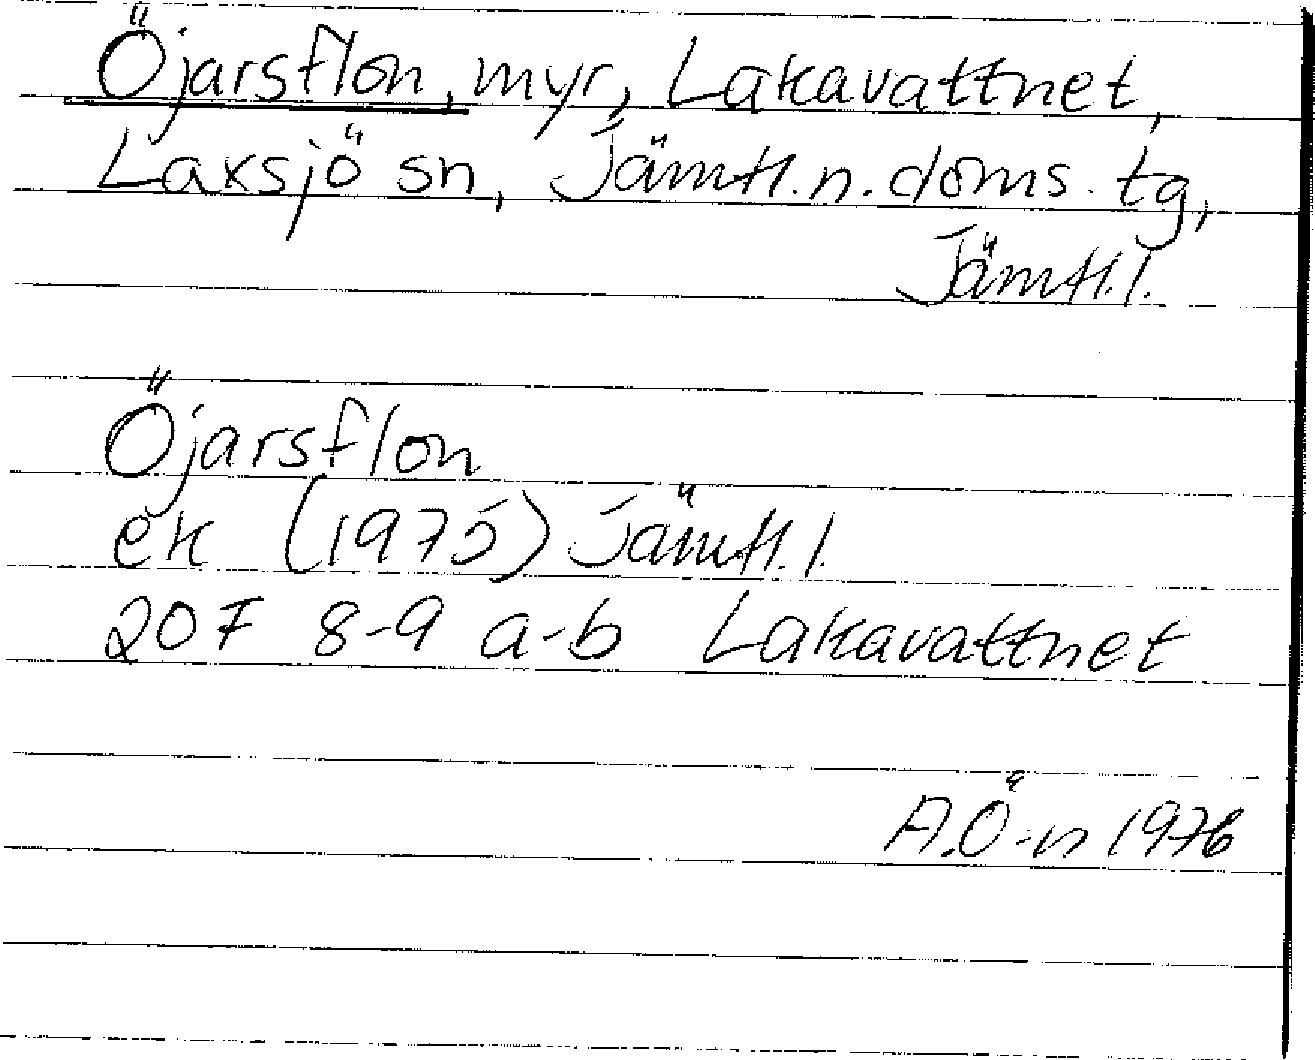 Öjarsflon, myr, Lakavattnet,
Laxsjö sn, Jämtl. n. doms. tg,
Jämtl. l.
Öjarsflon
ek (1975) Jämtl. l.
20F 8-9 a-b Lakavattnet
A.Ö-n 1976